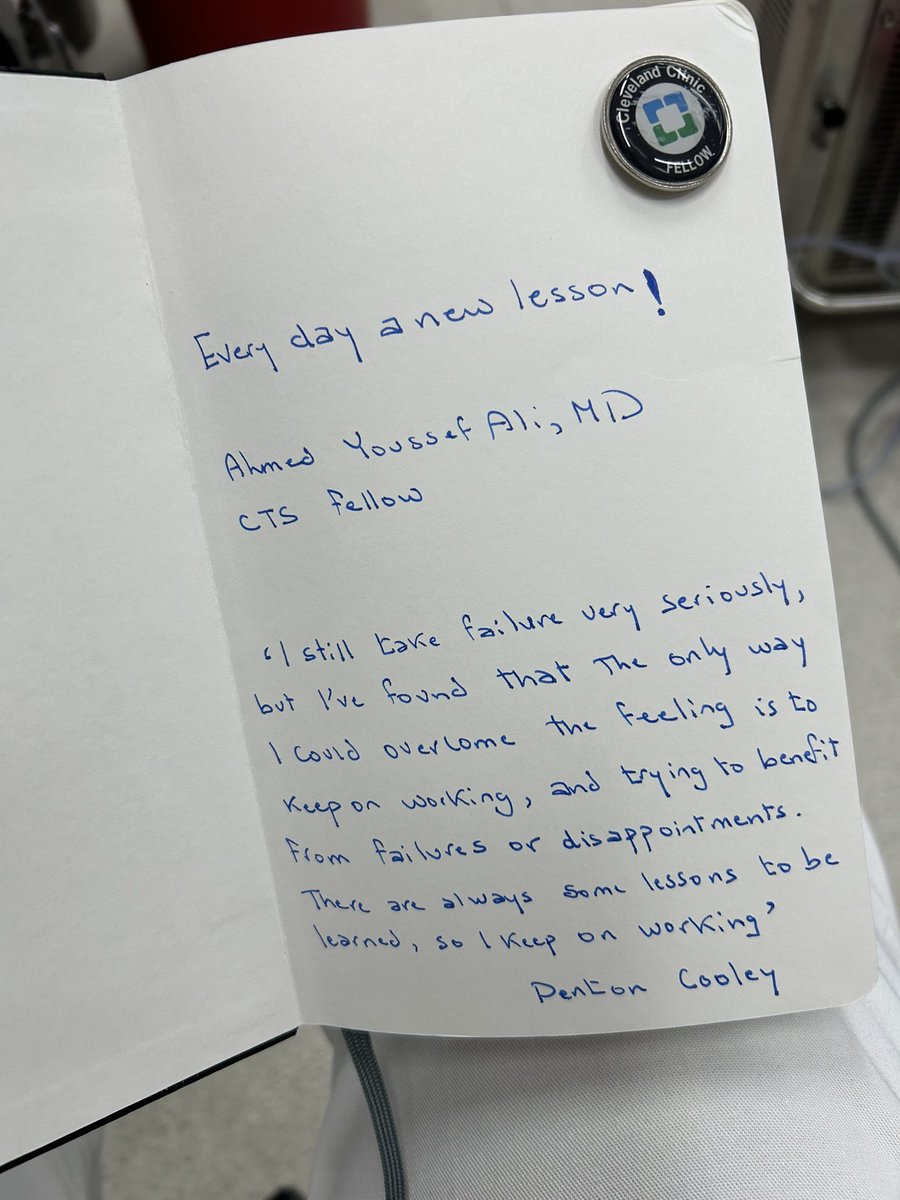 Cleveland Clinic
FELLOW
Every day a new lesson!
Ahmed Youssef Ali, MD
CTS Fellow
‘I still take failure very seriously,
but I've found that The only way
I could overcome the feeling is to
keep on working, and trying to benefit
From failures or disappointments.
There are always some lessons to be
learned, so I keep on working’
Denton Cooley